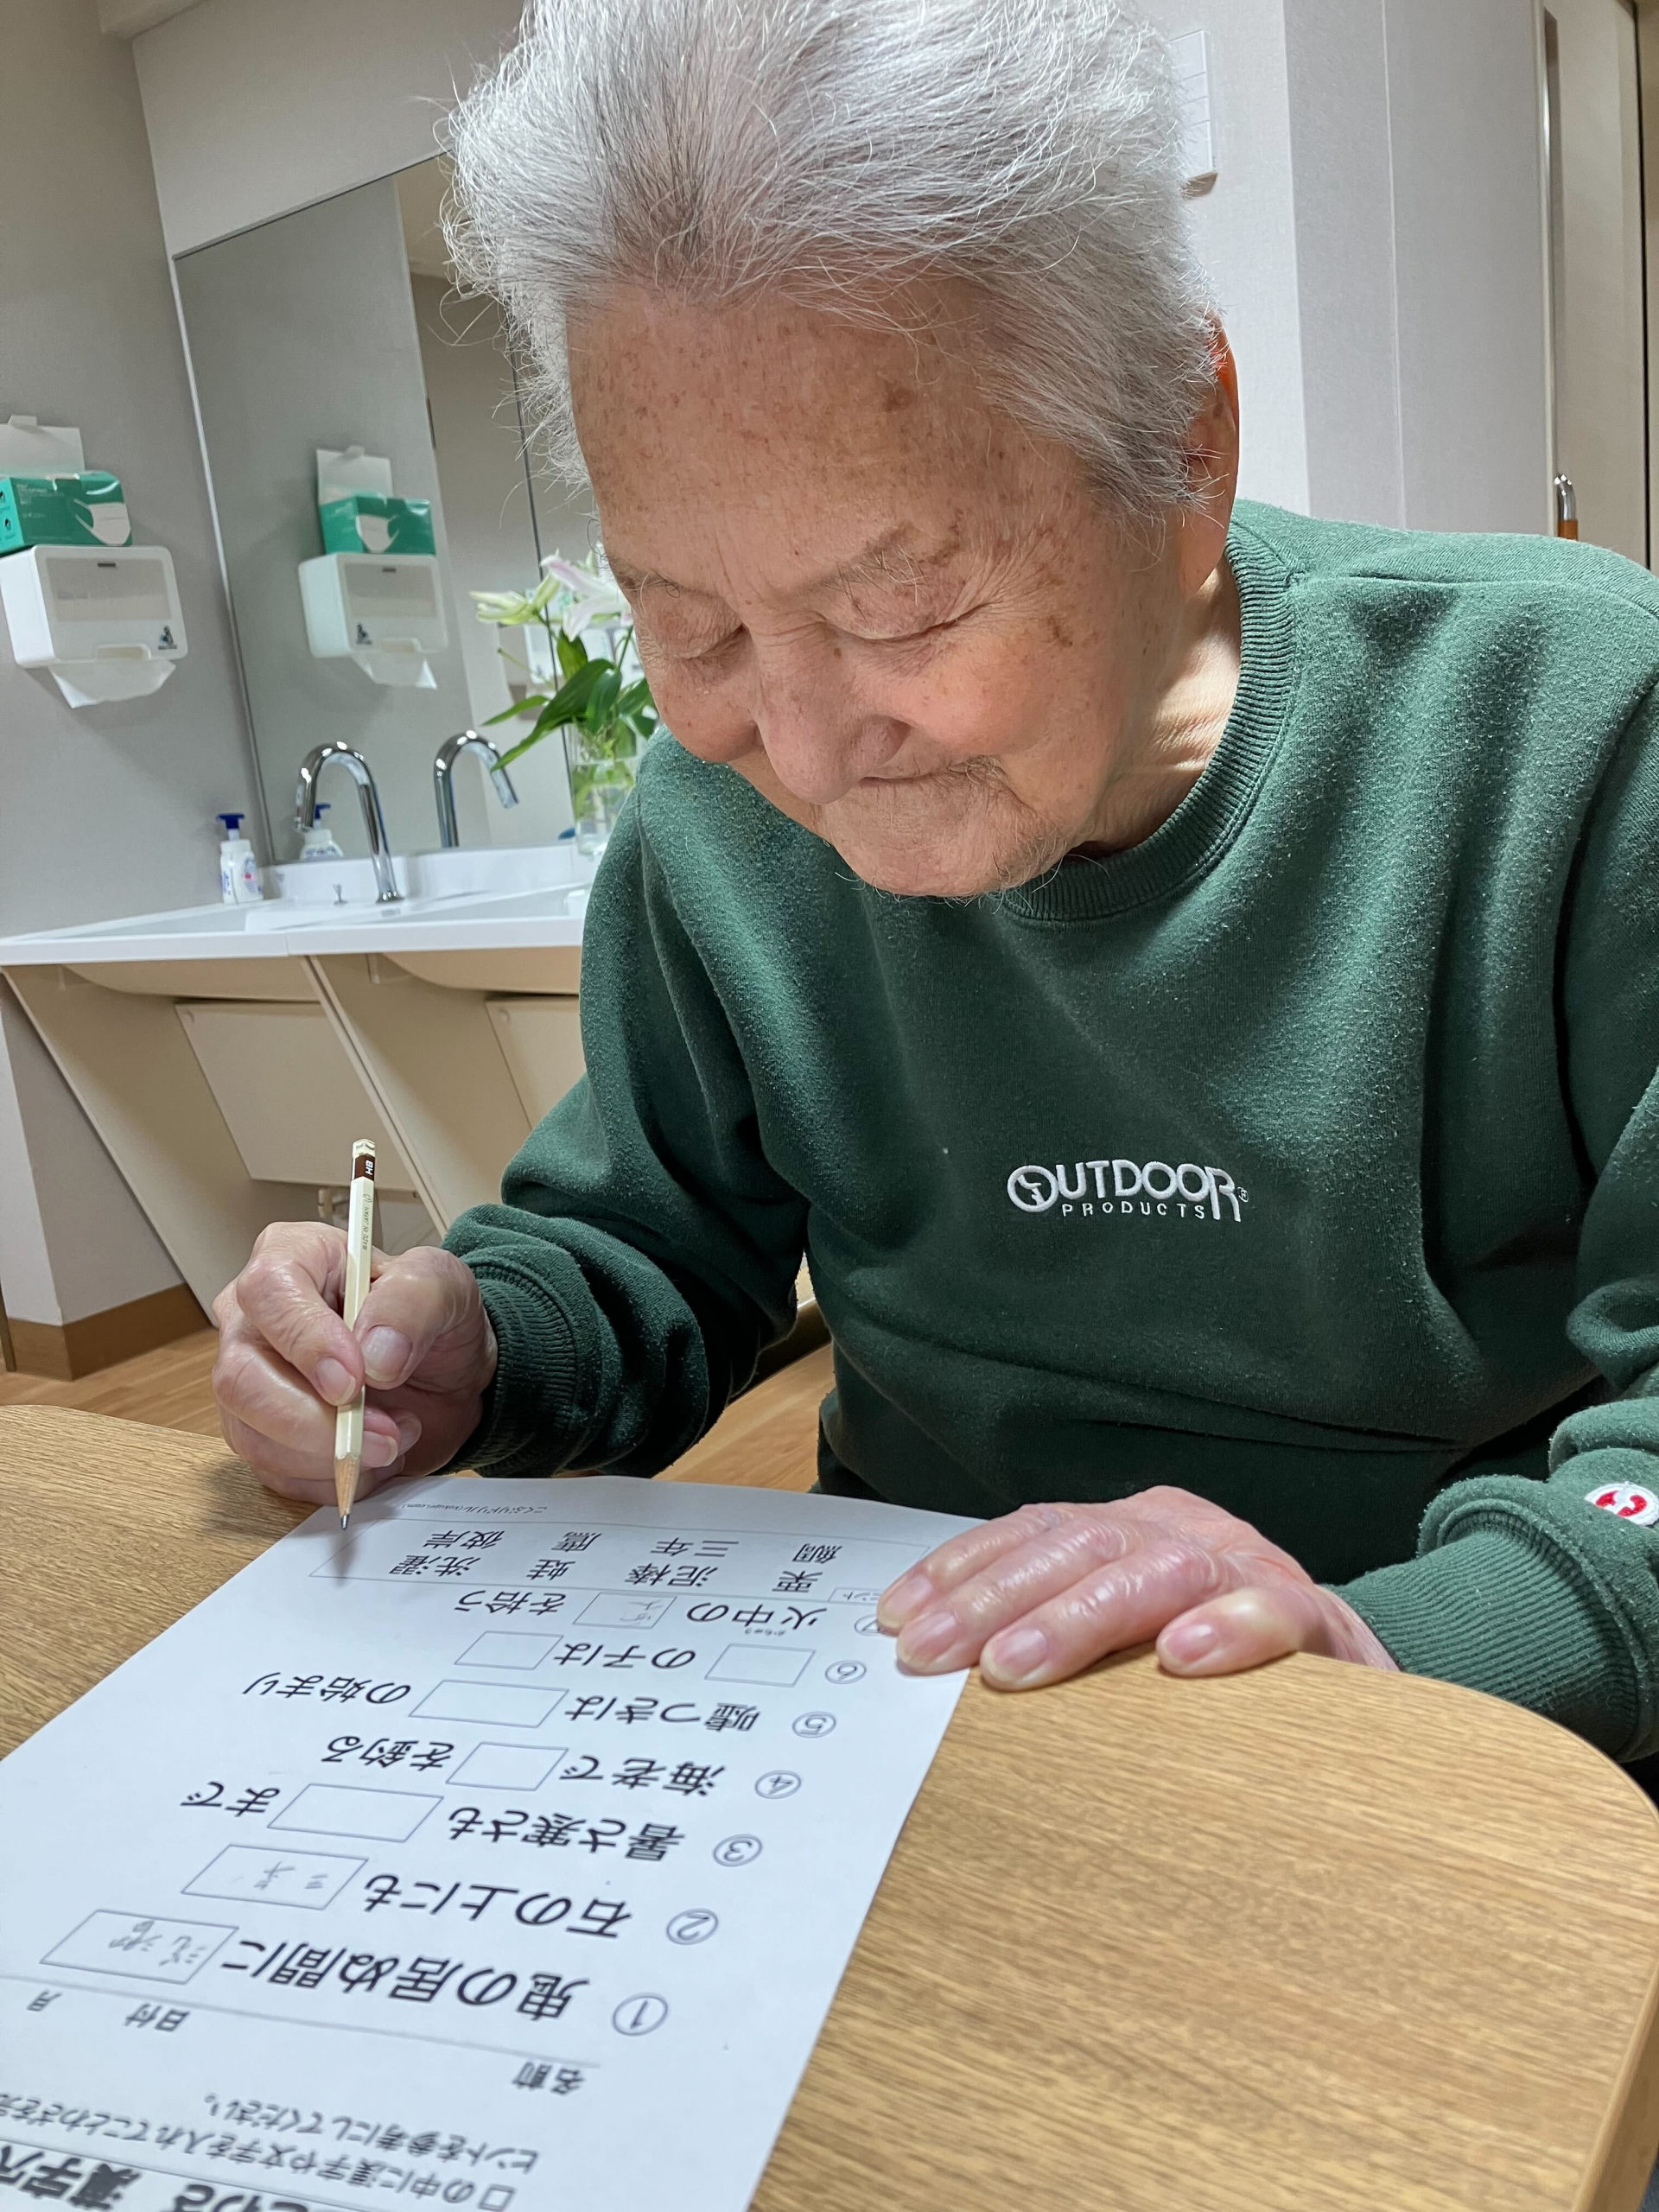 漢字
□の中に漢字や文字を入れてことわざを
ヒントを参考にしてください。
名前
日付 月
① 鬼の居ぬ間に 洗濯
② 石の上にも 三年
③ 暑さ寒さも まで
④ 海老で を釣る
⑤ 嘘つきは の始まり
⑥ の子は
⑦ 火中の を拾う
かちゅう
ヒント
栗 泥棒 蛙 洗濯
鯛 三年 鷹 彼岸
OUTDOOR
PRODUCTS
HB